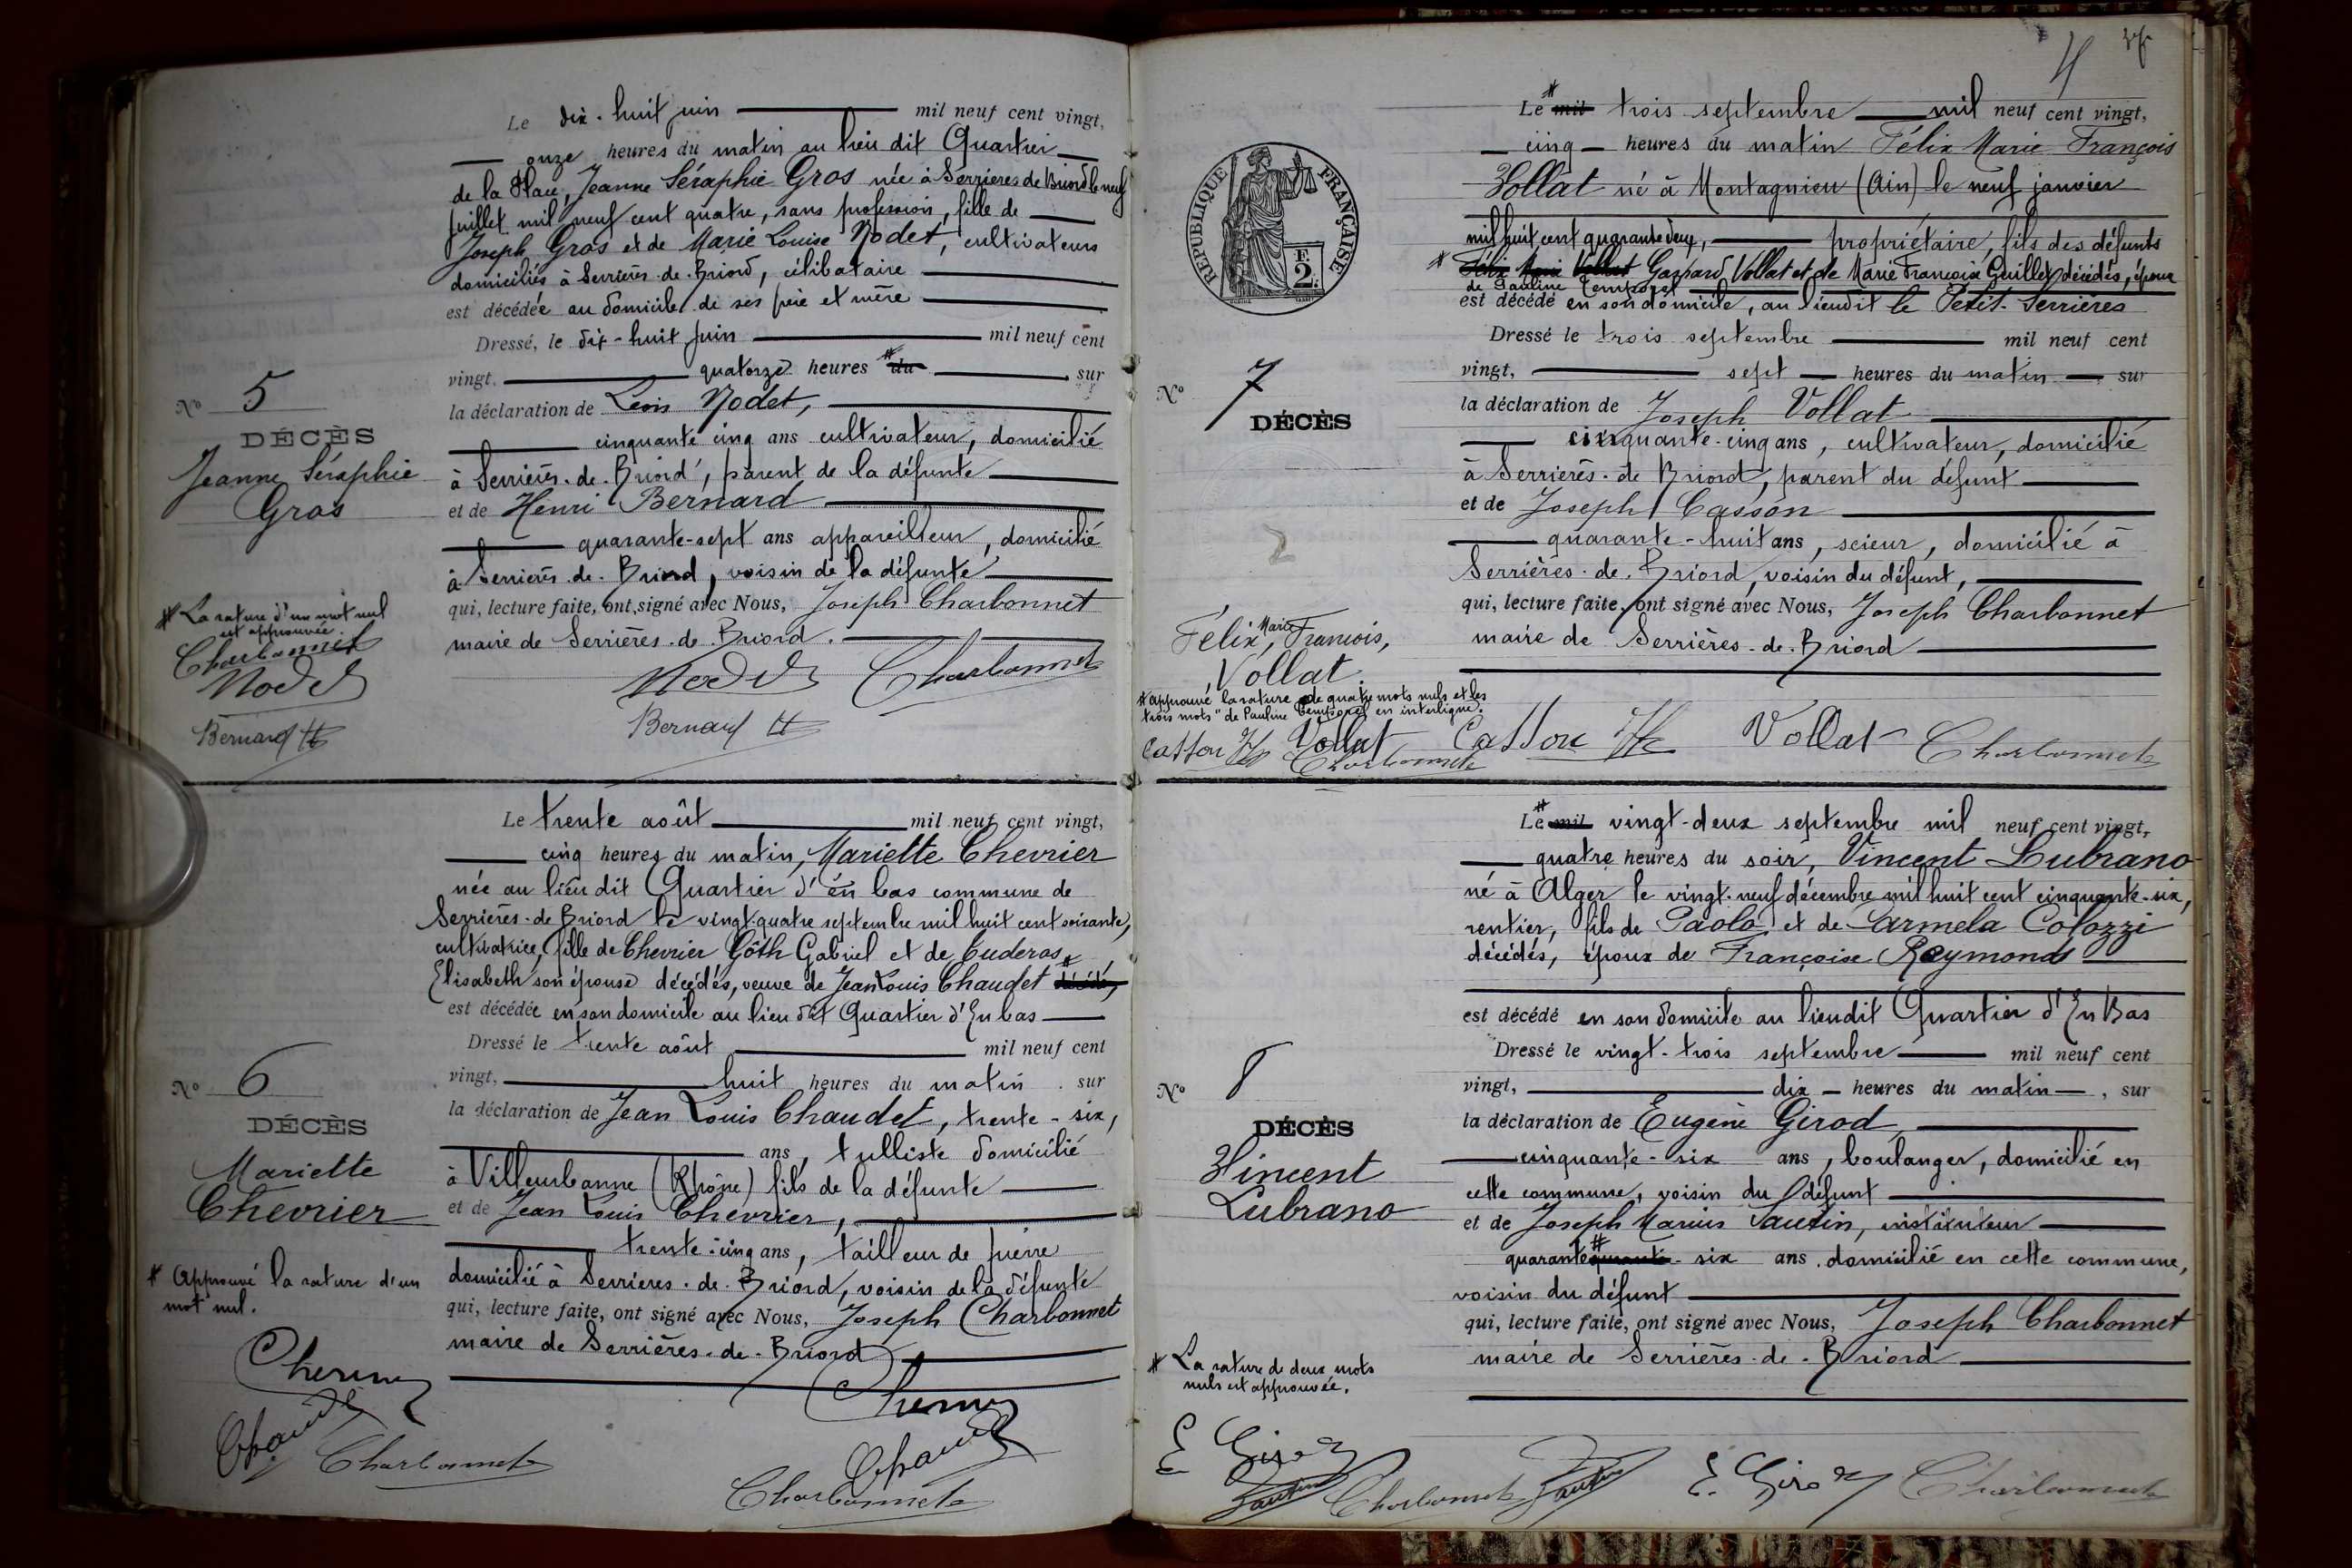 Le dix-huit juin mil neuf cent vingt,
onze heures du matin au lieu dit Quartier
de la Place, Jeanne Séraphie Gros née à Serrieres de Briord le neuf
juillet mil neuf cent quatre, sans profession, fille de
Joseph Gros et de Marie Louise Nodet, cultivateurs
domiciliés à Serrières-de-Briord, célibataire
est décédée au domicile de ses père et mère
Dressé, le dix-huit juin mil neuf cent
vingt, quatorze heures # du sur
la déclaration de Léon Nodet,
cinquante cinq ans cultivateur, domicilié
à Serrières-de-Briord, parent de la défunte
et de Henri Bernard
quarante-sept ans appareilleur, domicilié
à Serrières-de-Briord, voisin de la défunte
qui, lecture faite, ont signé avec Nous, Joseph Charbonnet
maire de Serrières-de-Briord.
Nodet Charbonnet
Bernard H
No 5
DÉCÈS
Jeanne Séraphie
Gros
# La rature d'un mot nul
est approuvée.
Charbonnet
Nodet
Bernard H
Le trente août mil neuf cent vingt,
cinq heures du matin, Mariette Chevrier
née au lieu dit Quartier d'en bas commune de
Serrières-de-Briord le vingt-quatre septembre mil huit cent soixante,
cultivatrice, fille de Chevrier Gôth Gabriel et de Cuderas
Elisabeth son épouse décédés, veuve de Jean Louis Chaudet # décédé,
est décédée en son domicile au lieu dit Quartier d'En bas
Dressé le trente août mil neuf cent
vingt, huit heures du matin sur
la déclaration de Jean Louis Chaudet, trente-six,
ans, tulliste domicilié
à Villeurbanne (Rhône) fils de la défunte
et de Jean Louis Chevrier,
trente-cinq ans, tailleur de pierre
domicilié à Serrieres-de-Briord, voisin de la défunte
qui, lecture faite, ont signé avec Nous, Joseph Charbonnet
maire de Serrières-de-Briord
Chevrier
Chaudet
Charbonnet
No 6
DÉCÈS
Mariette
Chevrier
# Approuvé la rature d'un
mot nul.
Chevrier
Chaudet
Charbonnet
4
RÉPUBLIQUE FRANÇAISE
2F.
Le # mil trois septembre mil neuf cent vingt,
cinq heures du matin Félix Marie François
Vollat né à Montagnieu (Ain) le neuf janvier
mil huit cent quarante deux, propriétaire, fils des défunts
# Félix Marie Vollat Gaspard Vollat et de Marie Françoise Guillet décédés, époux
de Pauline Temporel
est décédé en son domicile, au lieudit le Petit-Serrières
Dressé le trois septembre mil neuf cent
vingt, sept heures du matin sur
la déclaration de Joseph Vollat
cinquante-cinq ans, cultivateur, domicilié
à Serrières-de Briord, parent du défunt
et de Joseph Casson
quarante-huit ans, scieur, domicilié à
Serrières-de-Briord, voisin du défunt,
qui, lecture faite, ont signé avec Nous, Joseph Charbonnet
maire de Serrières-de-Briord
Casson Vollat Charbonnet
No 7
DÉCÈS
2
Félix, Marie François,
Vollat.
# Approuvé la rature de quatre mots nuls et les
trois mots "de Pauline Temporel en interligne.
Casson Vollat
Charbonnet
Le # mil vingt-deux septembre mil neuf cent vingt,
quatre heures du soir, Vincent Lubrano
né à Alger le vingt-neuf décembre mil huit cent cinquante-six,
rentier, fils de Paolo et de Carmela Colozzi
décédés, époux de Françoise Reymond
est décédé en son domicile au lieudit Quartier d'En Bas
Dressé le vingt-trois septembre mil neuf cent
vingt, dix heures du matin, sur
la déclaration de Eugène Girod
cinquante-six ans, boulanger, domicilié en
cette commune, voisin du défunt
et de Joseph Marius Sautin, instituteur
quarante # quarante-six ans domicilié en cette commune,
voisin du défunt
qui, lecture faite, ont signé avec Nous, Joseph Charbonnet
maire de Serrières-de-Briord
Sautin E. Girod Charbonnet
No 8
DÉCÈS
Vincent
Lubrano
# La rature de deux mots
nuls est approuvée.
E Girod
Sautin Charbonnet